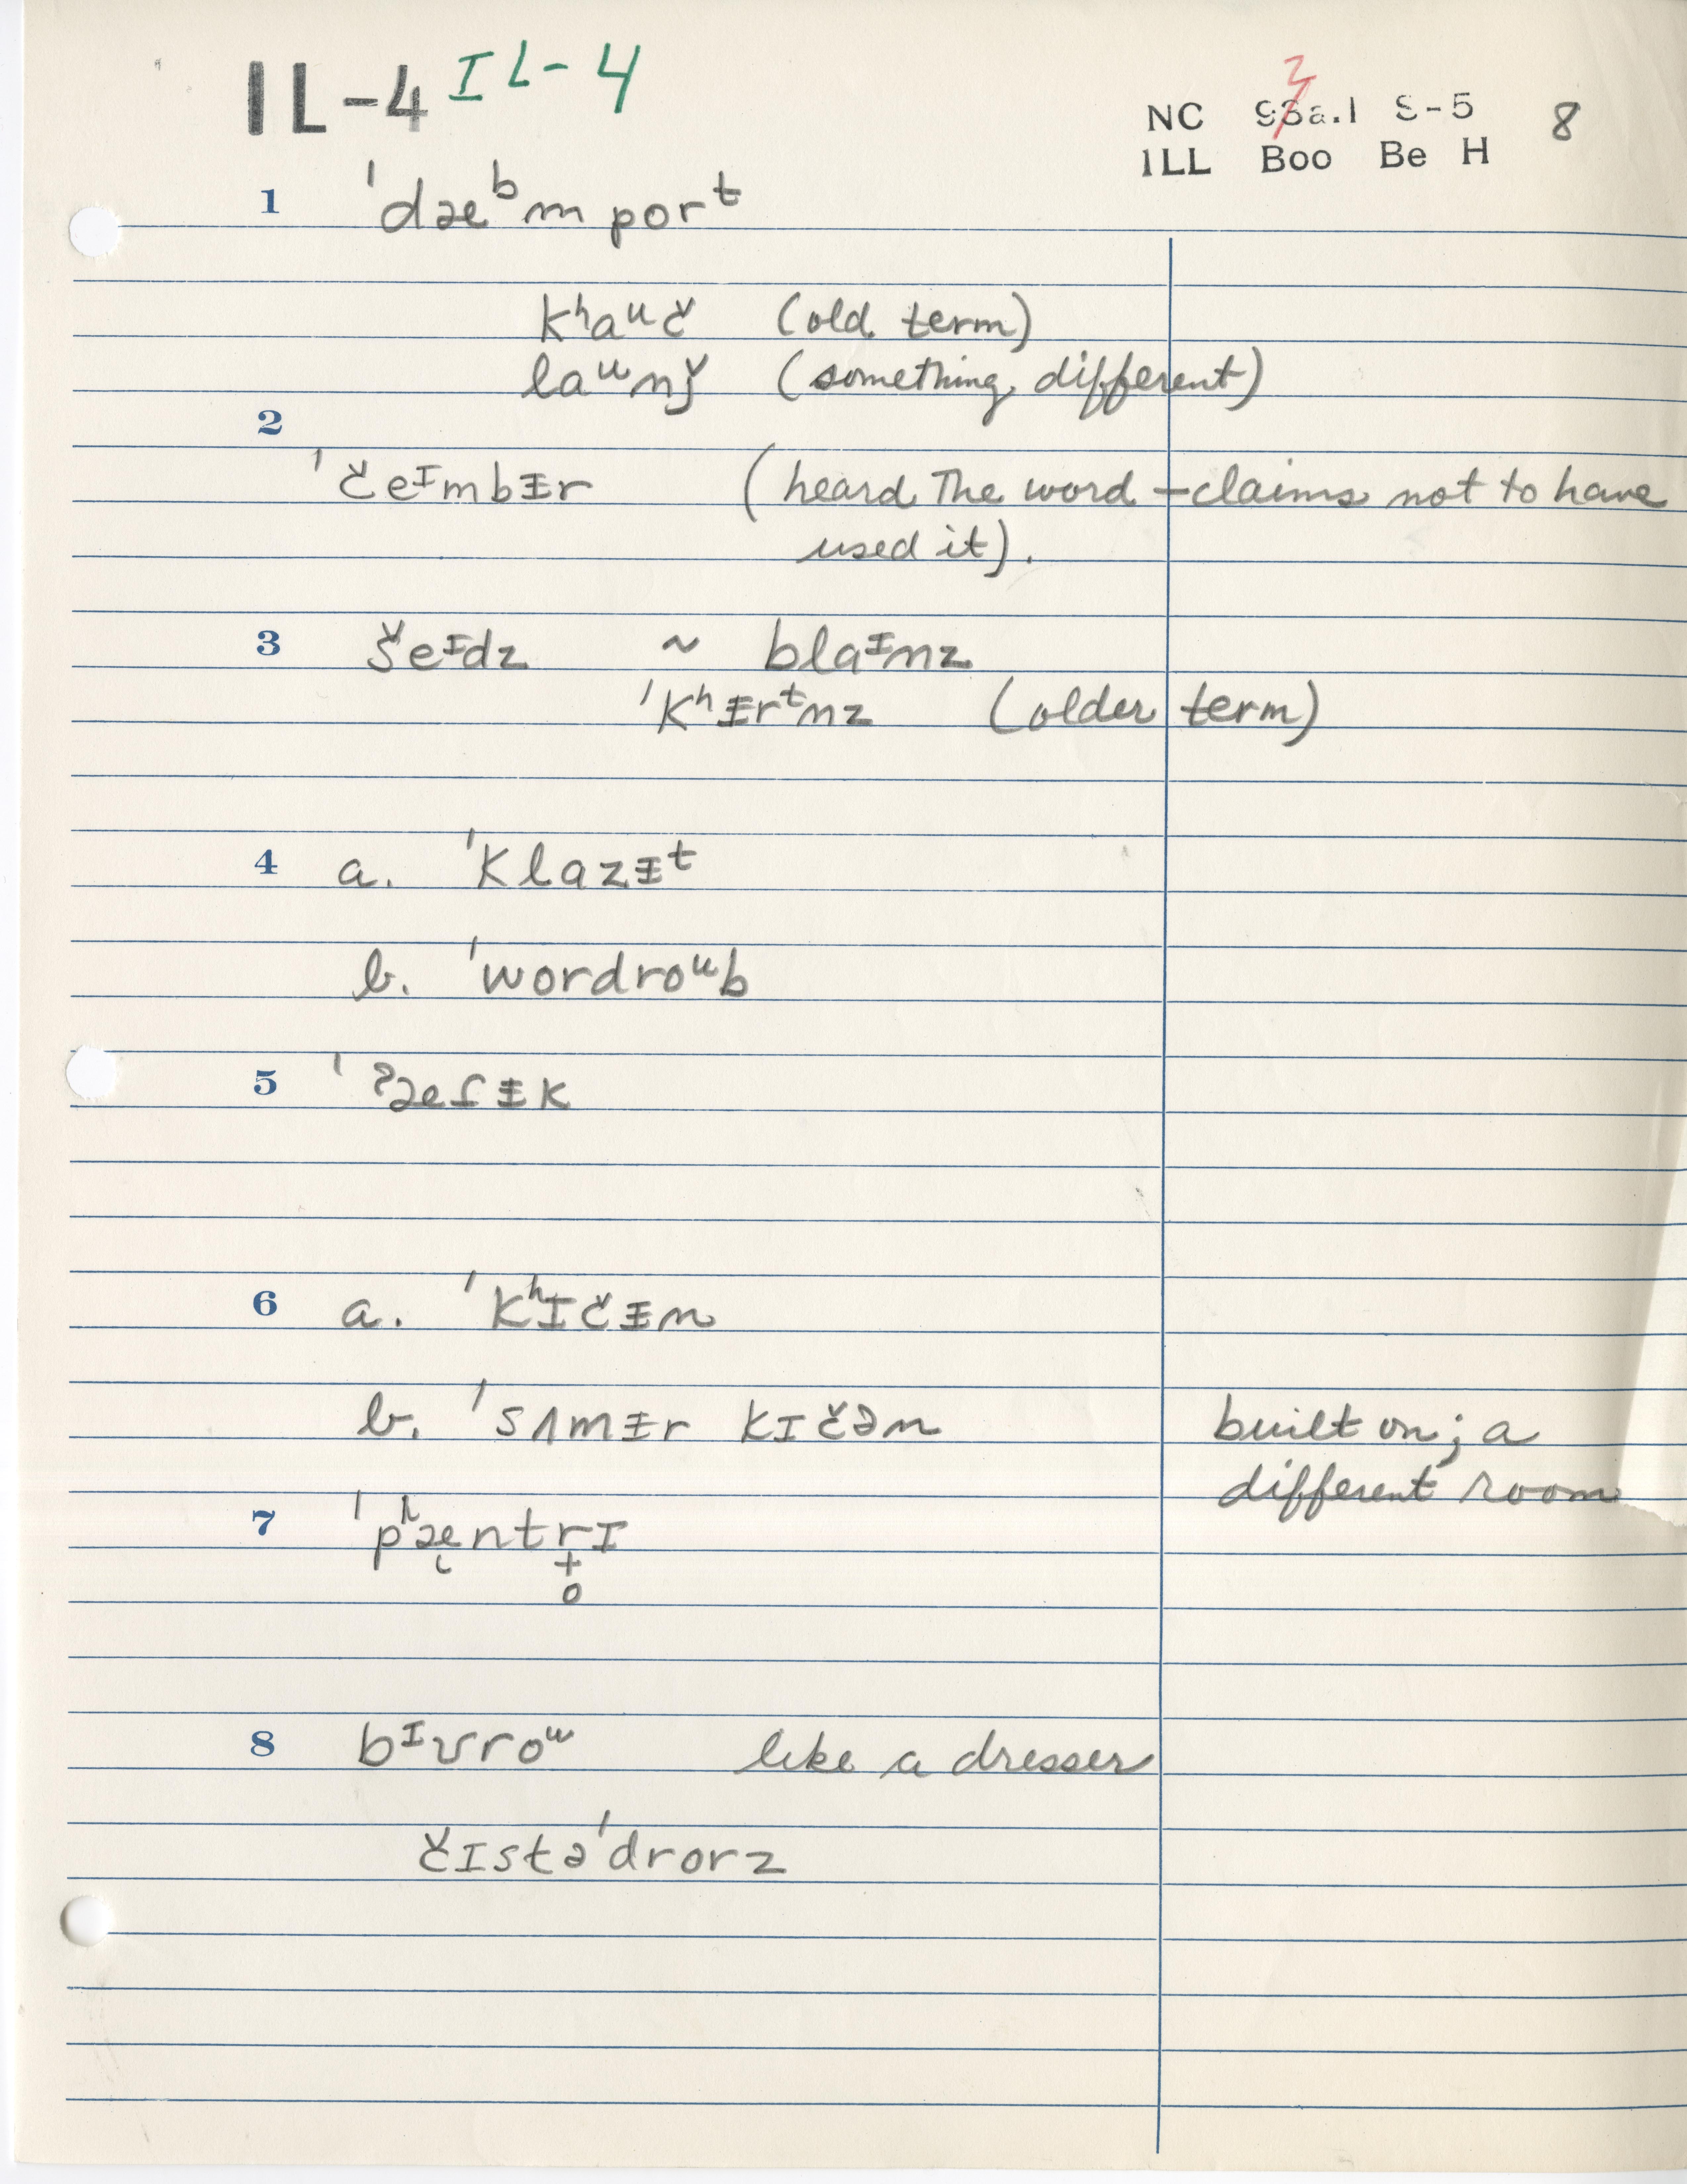 IL-4 IL-4
NC 93a.1 S-5 8
3
ILL Boo Be H
1 ˈdæᵇm porᵗ
kʰaᵘč (old term)
laᵘnǰ (something different)
2
ˈčeᶦmbɨr (heard The word – claims not to have
used it).
3 šeᶦdz ~ blaᶦnz
ˈkʰɨrᵗnz (older term)
4 a. ˈklazɨᵗ
b. ˈwordroᵘb
5 ˈʔæſɨk
6 a. ˈkʰɪčɨn
b. ˈsʌmɨr kɪčən built on; a
different room
7 ˈpʰæ̜ntr̟̊ɪ
8 bᶦʊroᵘ like a dresser
čɪstəˈdrorz